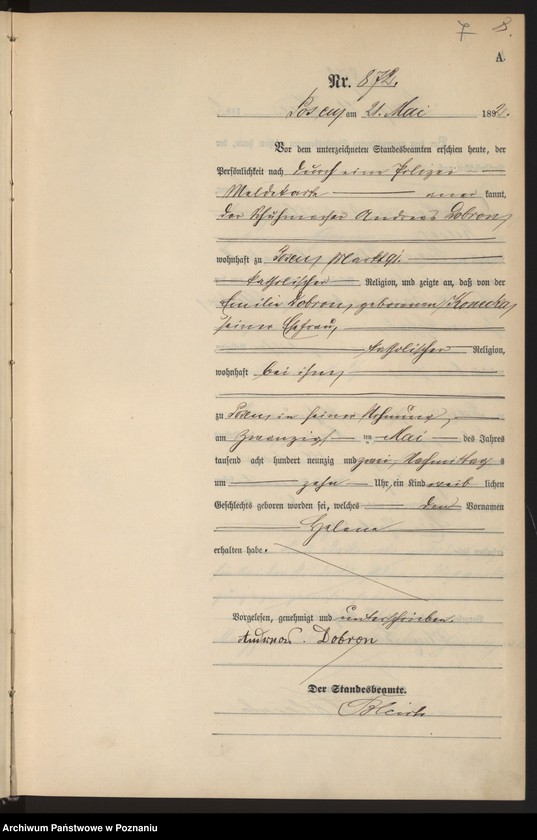 7 8.
A.
Nr. 872.
Posen, am 21. Mai 1892.
Vor dem unterzeichneten Standesbeamten erschien heute, der
Persönlichkeit nach durch eine Polizei
Meldekarte anerkannt,
der Schuhmacher Andreas Dobron,
wohnhaft zu Posen, Markt 91.
katholischer Religion, und zeigte an, daß von der
Emilie Dobron, geborenen
seiner Ehefrau,
katholischer Religion,
wohnhaft bei ihm,
zu Posen, in seiner Wohnung,
am zwanzigsten Mai des Jahres
tausend acht hundert neunzig und zwei, Nachmittags
um zehn Uhr, ein Kind weiblichen
Geschlechts geboren worden sei, welches den Vornamen
Helene
erhalten habe.
Vorgelesen, genehmigt und unterschrieben.
Andreas. Dobron
Der Standesbeamte.
Archiwum Państwowe w Poznaniu